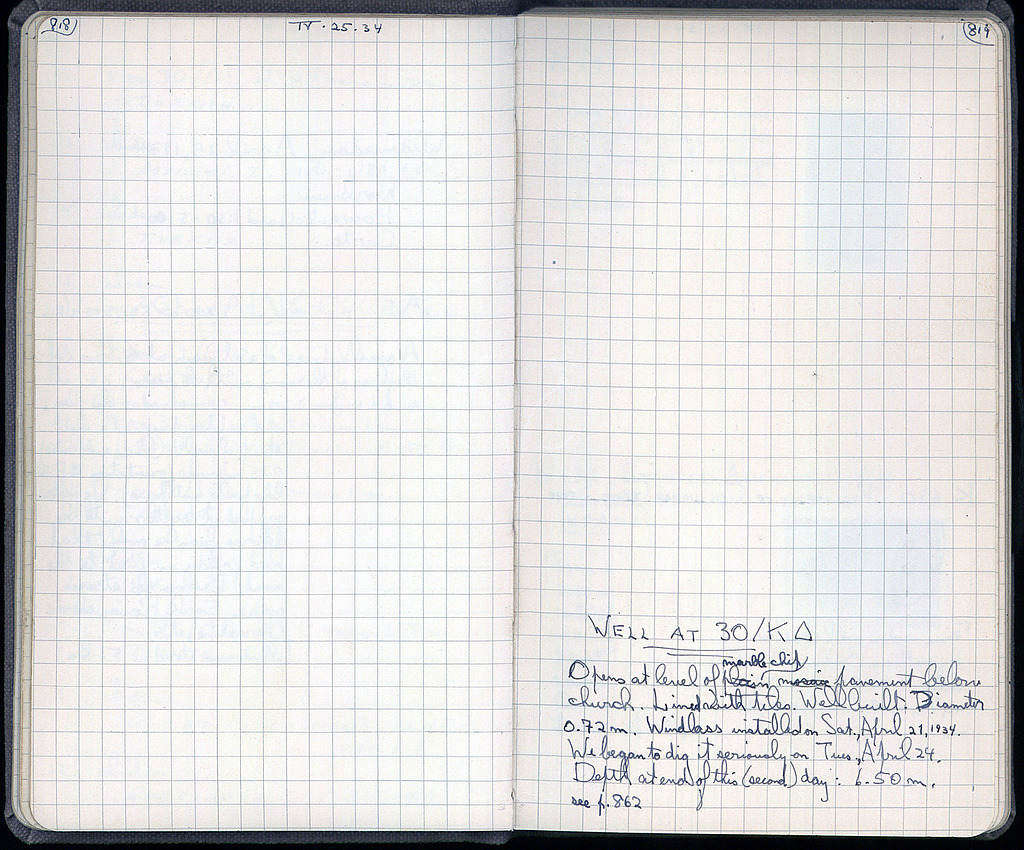 818
IV.25.34
819
WELL AT 30/ΚΔ
marble chip
Opens at level of pavement below
church. Lined with tiles. Well built. Diameter
0.72 m. Windlass installed on Sat., April 21, 1934.
We began to dig it seriously on Tues., April 24.
Depth at end of this (second) day: 6.50 m.
see p. 862